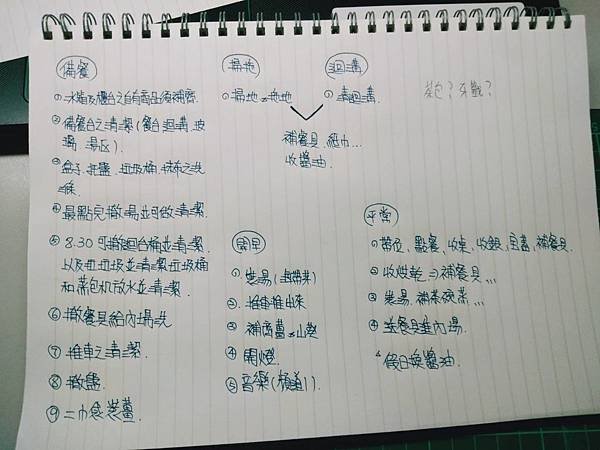 備餐
① 水箱及檯台之自有商品須補齊.
② 備餐台之清潔(餐台迴溝.玻
璃. 湯区).
③ 盒子.托盤.垃圾桶.抹布之洗
滌.
④ 最點完撤湯並可做清潔.
⑤ 8.30 可撤回台桶並清潔.
以及丟垃圾並清潔垃圾桶
和茶包机放水並清潔.
⑥ 撤餐具給內場洗
⑦ 推車之清潔.
⑧ 撤盤.
⑨ 薑.
掃地
① 掃地 拖地
迴溝
① 清迴溝.
補餐具.紙巾...
收醬油.
茶包? 牙籤?
開早
① 裝湯(
② 推車推出來
③ 補 薑 山葵
④ 開燈.
⑤ 音樂(頻道1).
平常
① 帶位.點餐.收桌.收銀. 補餐具.
② 收烘乾 補餐具...
③ 裝湯.補茶碗蒸...
④ 送餐具進內場.
假日換醬油.